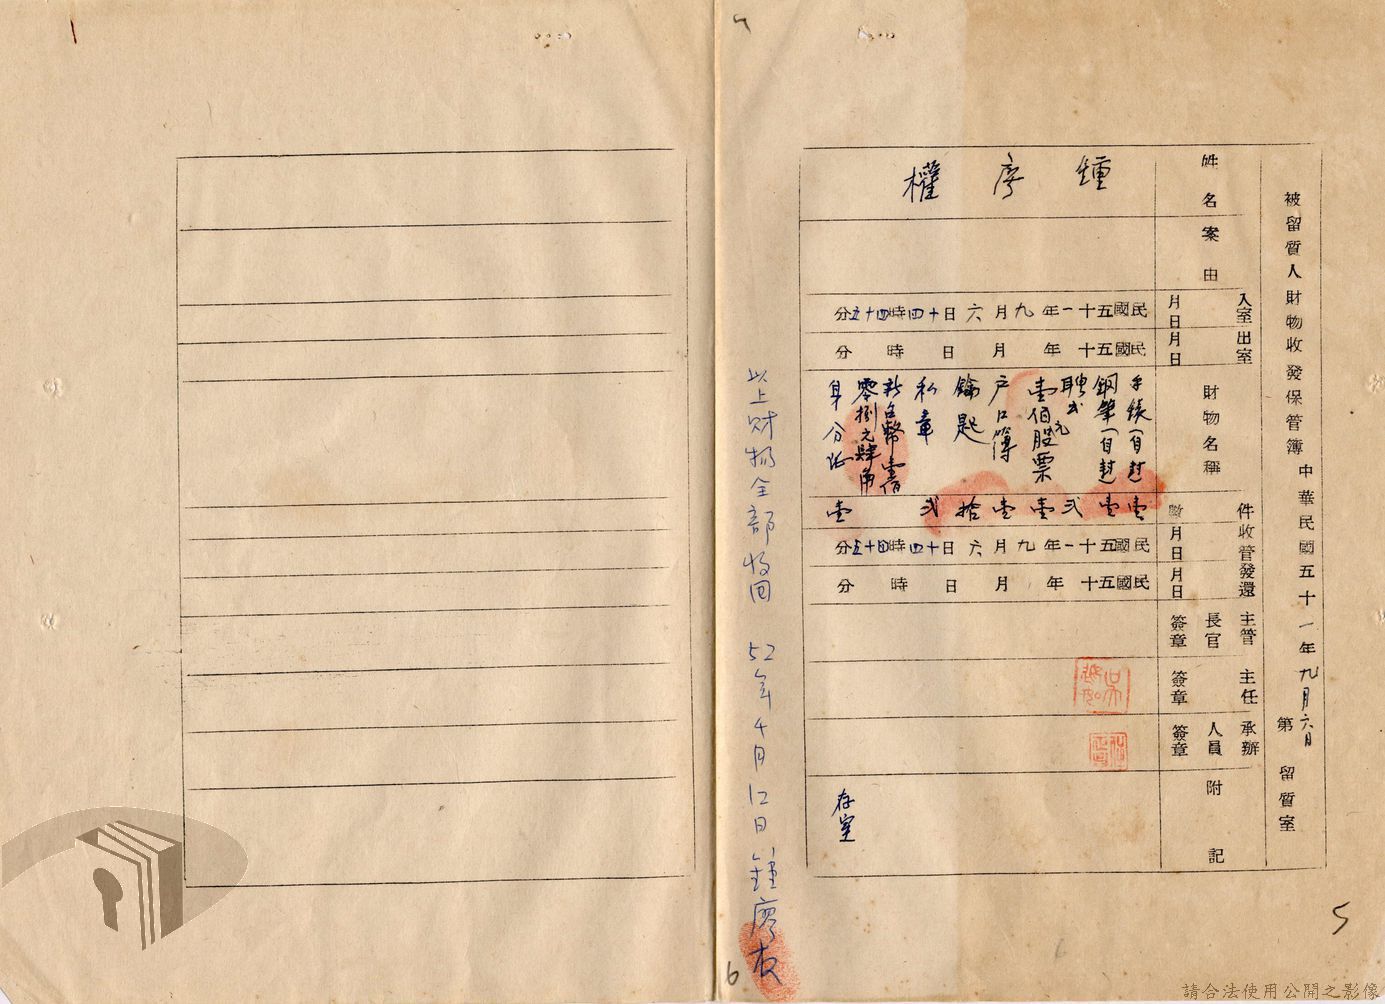 被留質人財物收發保管簿 中華民國五十一年九月六日 第 留質室
姓名 鍾廖權
案由
入室 月日 民國五十一年九月六日十四時四十五分
出室 月日 民國五十 年 月 日 時 分
財物名稱
手錶(自封
鋼筆(自封
聘書
壹佰元股票
戶口簿
鑰匙
私章
新台幣壹佰
零捌元肆角
身分証
件數 壹 壹 弍 壹 壹 拾 弍 壹
收管 月日 民國五十一年九月六日十四時四十五分
發還 月日 民國五十 年 月 日 時 分
主管長官簽章
主任簽章
承辦人員簽章
附記 存室
以上財物全部收回 52年4月12日 鍾廖权
5
6
請合法使用公開之影像